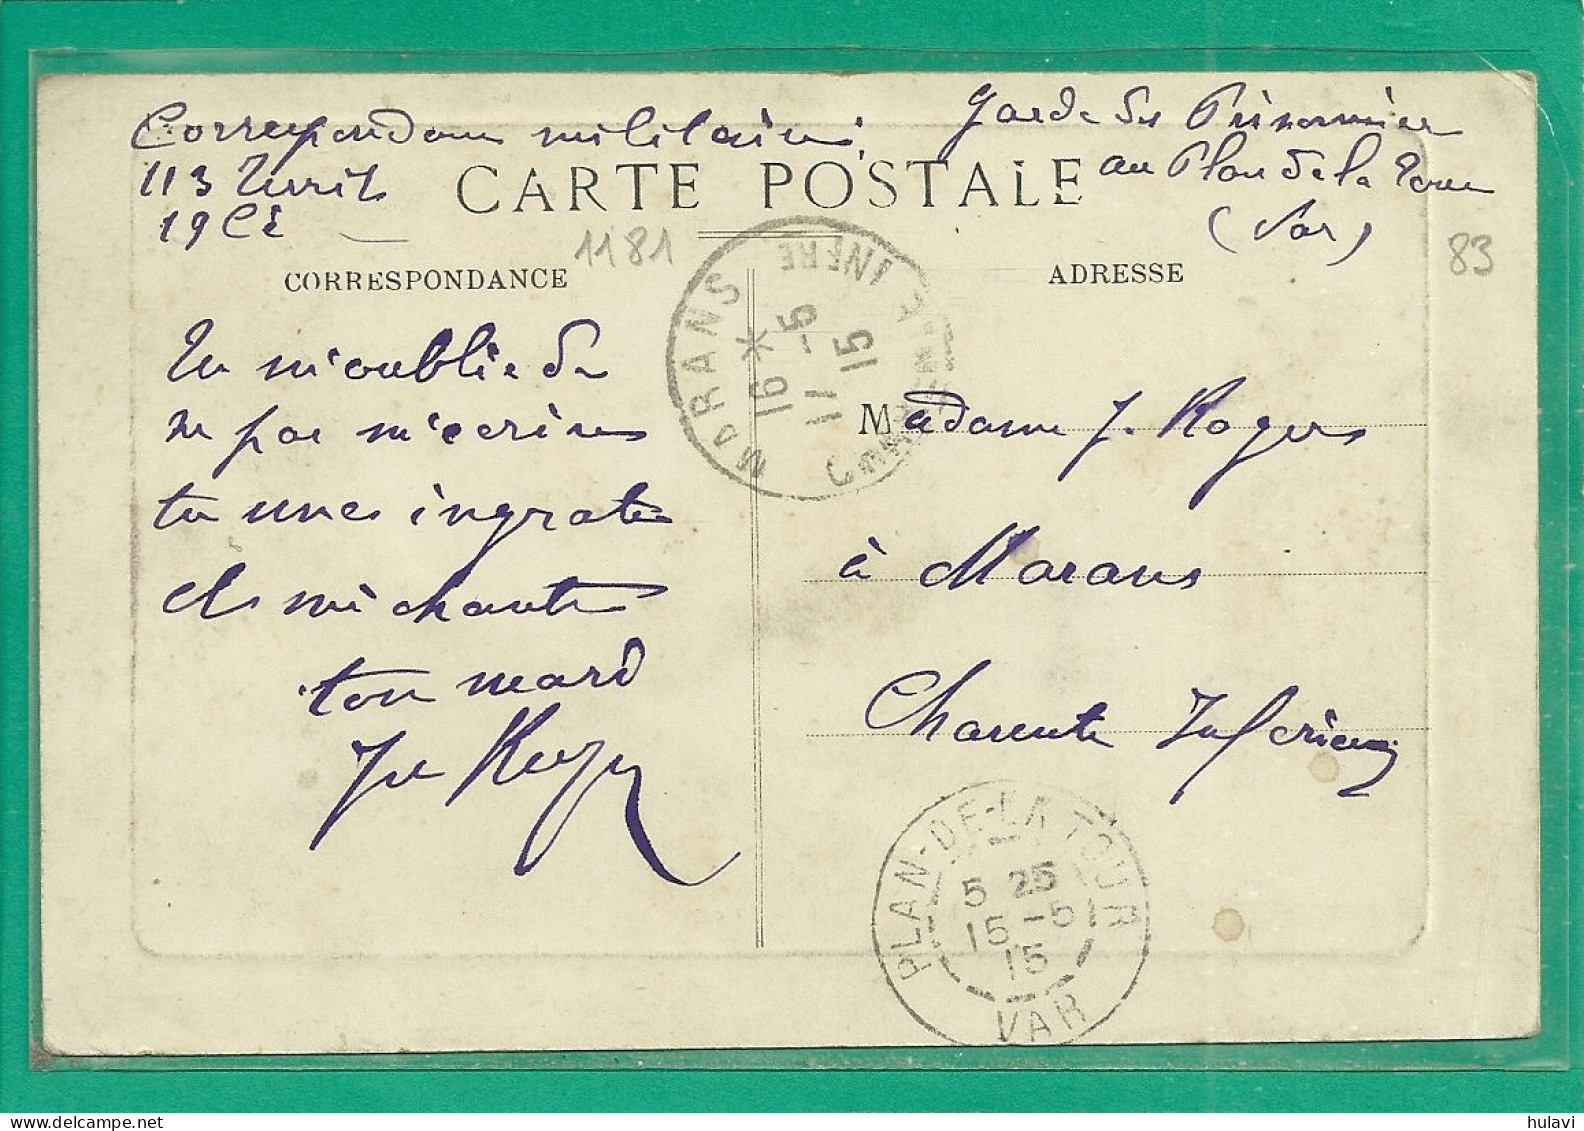 Correspondance militaire
113 Territ
19 Cie
Garde des Prisonniers
au Plan de la Tour
(Var)
CARTE POSTALE
1181
83
CORRESPONDANCE
ADRESSE
MARANS
CHARENTE INFRE
16 *
11 -5
15
Tu m'oublie de
ne pas m'écrire
tu une ingrate
et méchante
ton mari
Madame J. Rogers
à Marans
Charente Inférieure
PLAN-DE-LA TOUR
5 25
15 -5
15
VAR
hulavi